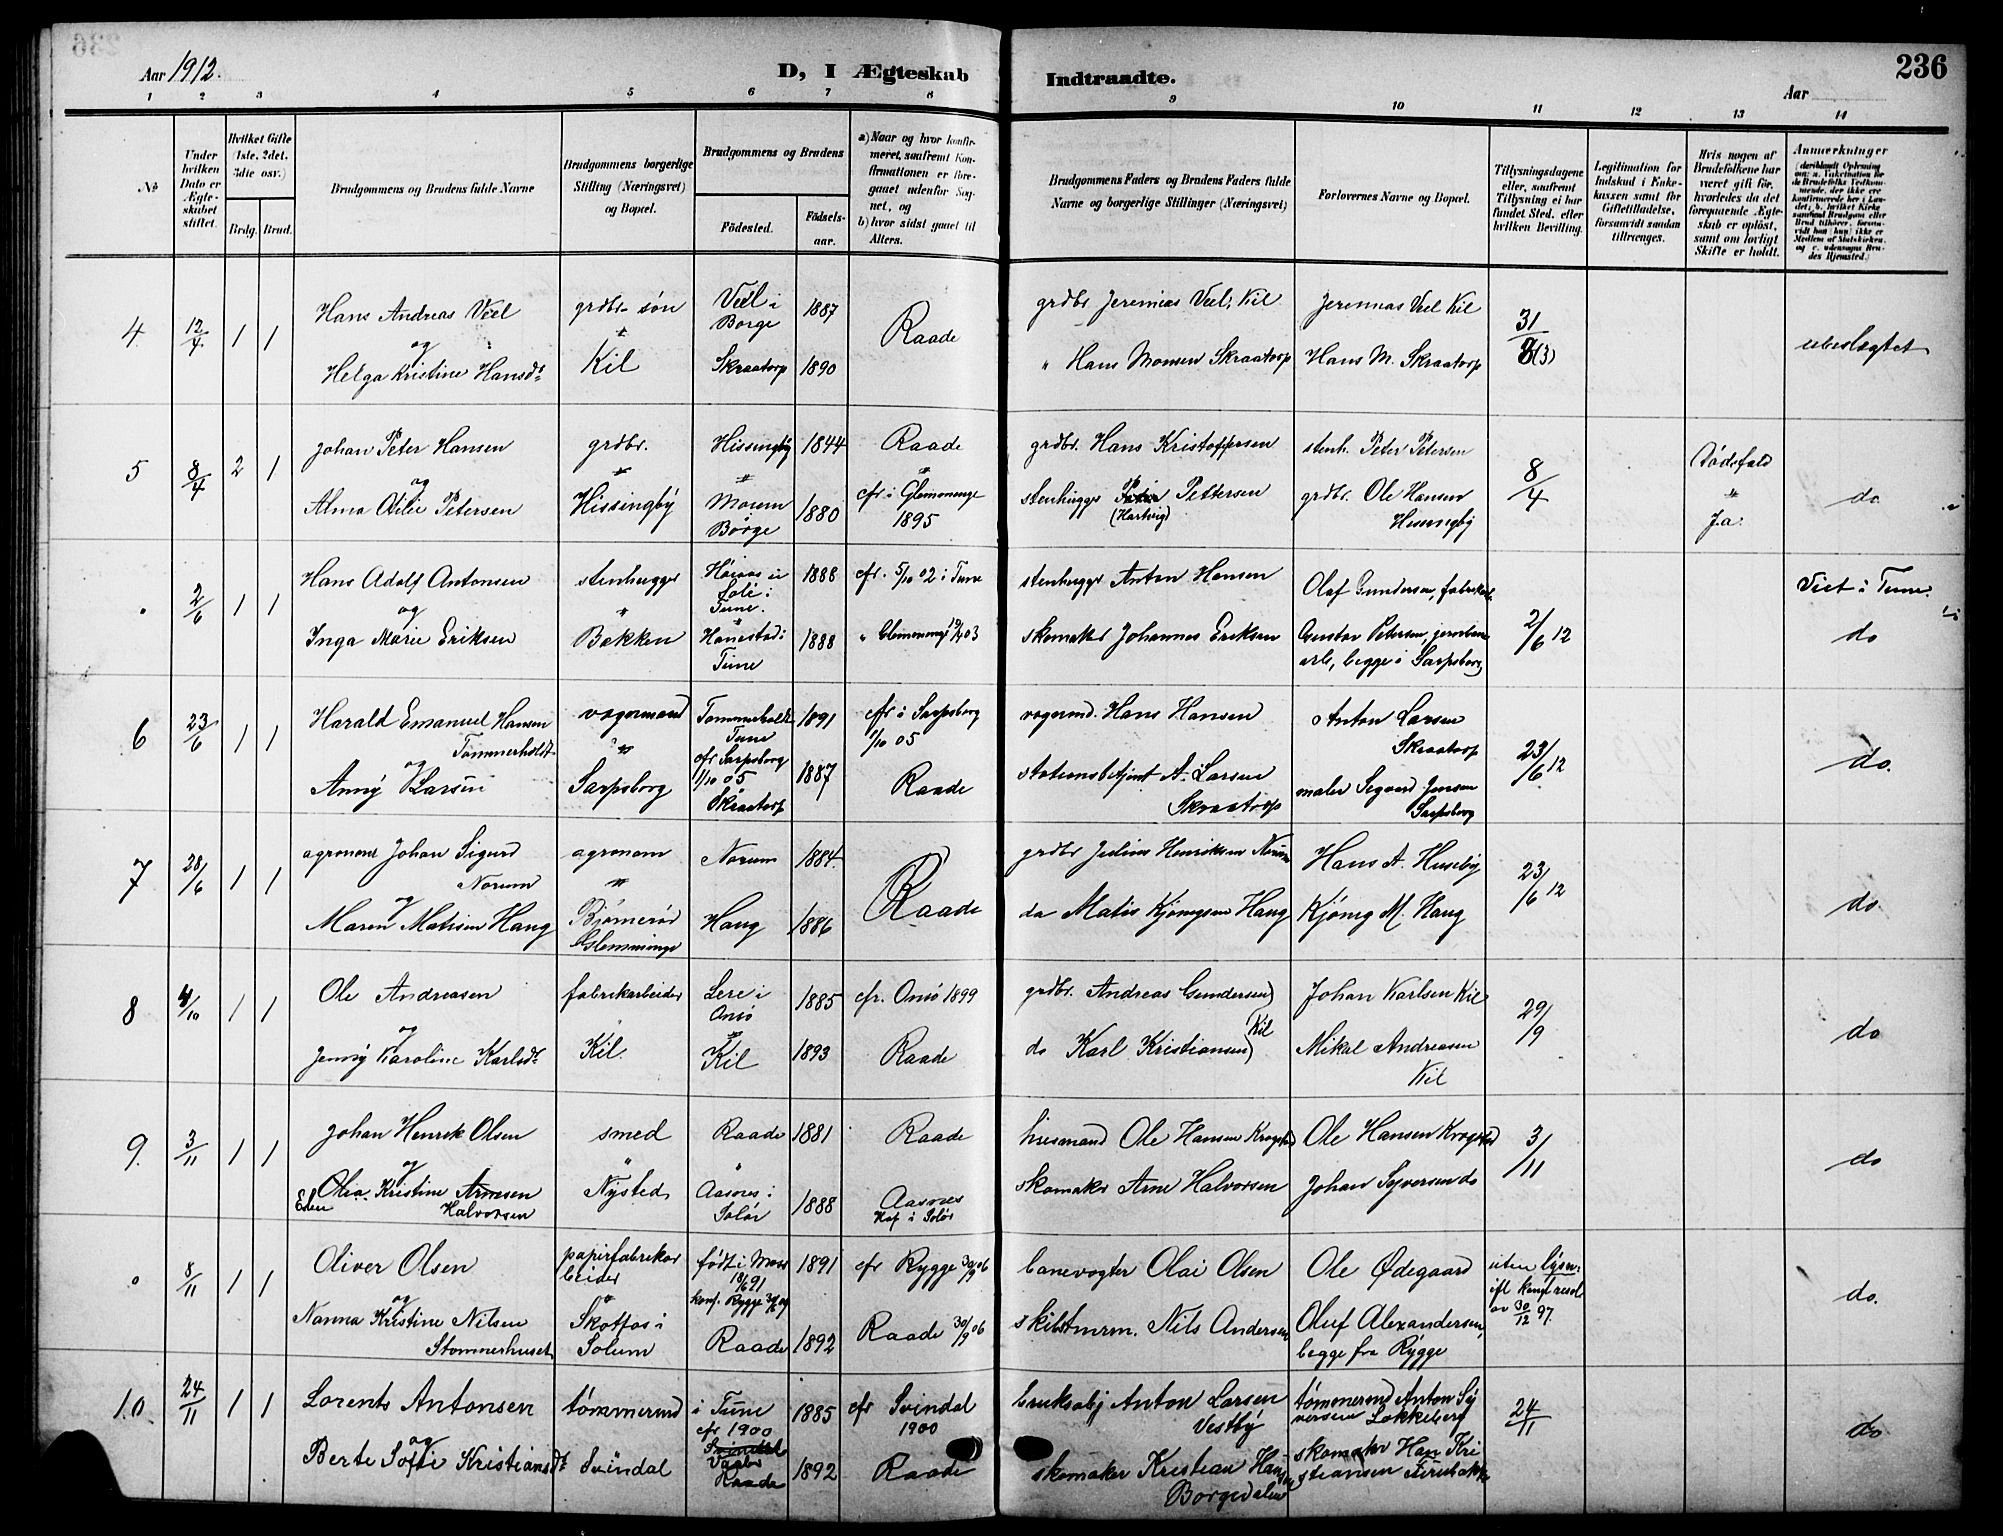 236
Aar 1912.
D, I Ægteskab
Indtraadte.
Aar
1 2 3 4 5 6 7 8 9 10 11 12 13 14
No
Under hvilken Dato er Ægteskabet stiftet.
Hvilket Gifte (1ste, 2det, 3die osv.)
Brdg. Brud.
Brudgommens og Brudens fulde Navne
Brudgommens borgerlige Stilling (Næringsvei) og Bopæl.
Brudgommens og Brudens
Födested.
Födselsaar.
a) Naar og hvor konfirmeret, saafremt Konfirmationen er foregaaet udenfor Sognet, og
b) hvor sidst gaaet til Alters.
Brudgommens Faders og Brudens Faders fulde Navne og borgerlige Stillinger (Næringsvei)
Forlovernes Navne og Bopæl.
Tillysningsdagene eller, saafremt Tillysning ei har fundet Sted, efter hvilken Bevilling.
Legitimation for Indskud i Enkekassen samt for Giftetilladelse, forsaavidt saadan tiltrænges.
Hvis nogen af Brudefolkene har været gift för, hvorledes da det foregaaende Ægteskab er oplöst, samt om lovligt Skifte er holdt.
Anmærkninger
4 12/4 1 1
Hans Andreas Veel
og
Helga Kristine Hansdt.
grdbr. søn
Kil
Veel i
Borge
Skraatorp
1887
1890
Raade
grdbr Jeremias Veel, Kil
" Hans Monsen Skraatorp
Jeremias Veel Kil
Hans M. Skraatorp
31/3 (3)
ubeslægtet
5 8/4 2 1
Johan Peter Hansen
og
Alma Otilie Petersen
grdbr.
Hissingby
Hissingby
Moum
Borge
1844
1880
Raade
cfr i Glemminge
1895
grdbr. Hans Kristoffersen
stenhugger Peter Pettersen
(Hartvig)
stenh. Peter Petersen
grdbr. Ole Hansen
Hissingby
8/4
Dødsfald
"
Ja
do
2/6 1 1
Hans Adolf Antonsen
og
Inga Marie Eriksen
stenhugger
"
Bakken
Tune.
Hanestad i
Tune
1888
1888
cfr. 5/10 02 i Tune
" Glemminge 03
stenhugger Anton Hansen
skomaker Johannes Eriksen
Olaf Gundersen, fabrikarb.
Gustav Petersen, jernbane
arb, begge i Sarpsborg
2/6 12
Viet i Tune.
do
6 23/6 1 1
Harald Emanuel Hansen
Tommerholdt
og
Anny Larsen
vognmand
"
Sarpsborg
Tommerholdt
Tune
cfr Sarpsborg
1/10 05
Skraatorp
1891
1887
cfr i Sarpsborg
1/10 05
Raade
vognmd. Hans Hansen
stationsbetjent A. Larsen
Skraatorp
Anton Larsen
Skraatorp
maler Segaard Jensen
Sarpsborg
23/6 12
do.
7 28/6 1 1
agronom Johan Sigurd
Norum
og
Maren Matisen Haug
agronom
"
Bjørnerød
Glemminge
Norum
Haug
1884
1886
Raade
grdbr Julius Henriksen Norum
do Matis Kjønigsen Haug
Hans A. Huseby
Kjønig M. Haug
23/6 12
do
8 4/10 1 1
Ole Andreasen
og
Jenny Karoline Karlsdt.
fabrikarbeider
"
Kil.
Lere i
Onsø
"
Kil
1885
1893
cfr. Onsø 1899
Raade
grdbr. Andreas Gundersen)
do Karl Kristiansen) Kil
Johan Karlsen Kil
Mikal Andreasen
Kil
29/9
do
9. 3/11 1 1
Johan Henrik Olsen
og
Olia Kristine Arnesen
Halvorsen
smed
"
Nysted
Raade
"
Aasnes i
Solør
1881
1888
Raade
Aasnes
Hof i Solør
husmand Ole Hansen Krogstad
skomaker Arne Halvorsen
Ole Hansen Krogstad
Johan Syversen do
3/11
do
8/11 1 1
Oliver Olsen
og
Nanna Kristine Nilsen
Stommerhuset
papirfabrikar
beider
"
Skotfos i
Solum
født i Moss
18/6 91
konf. Rygge
Raade
1891
1892
cfr Rygge 30/9 06
Raade 30/9 06
banevogter Olai Olsen
Nils Andersen
Ole Ødegaard
Oluf Alexandersen,
begge fra Rygge
uten lysn.
ifl kongl resol
av 30/12 97.
do.
10 24/11 1 1
Lorents Antonsen
og
Berte Sofie Kristiansdt
tømmermd
Svindal
i Tune
cfr 1900
Svindal
Vaaler
Raade
1885
1892
cfr Svindal
1900
Raade
bruksarbj Anton Larsen
Vestby
skomaker Kristian Hansen
Borgedalen
tømmermd Anton Sy
versen Løkkeberg
skomaker Han Kri
stiansen
24/11
do